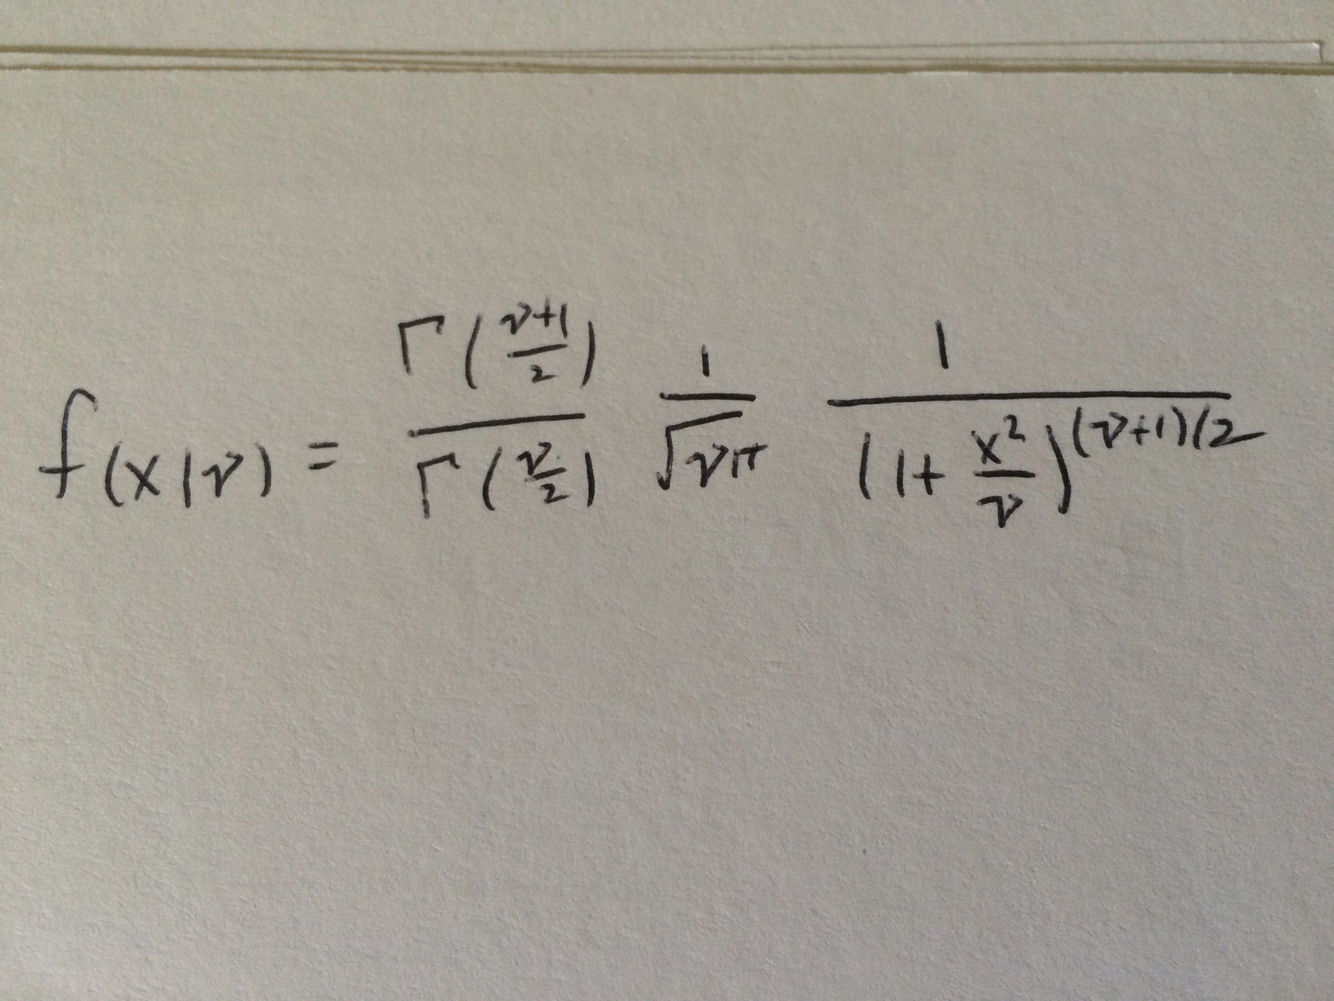 f(x|ν) = Γ((ν+1)/2) / Γ(ν/2) 1/√(νπ) 1/(1+x²/ν)^((ν+1)/2)